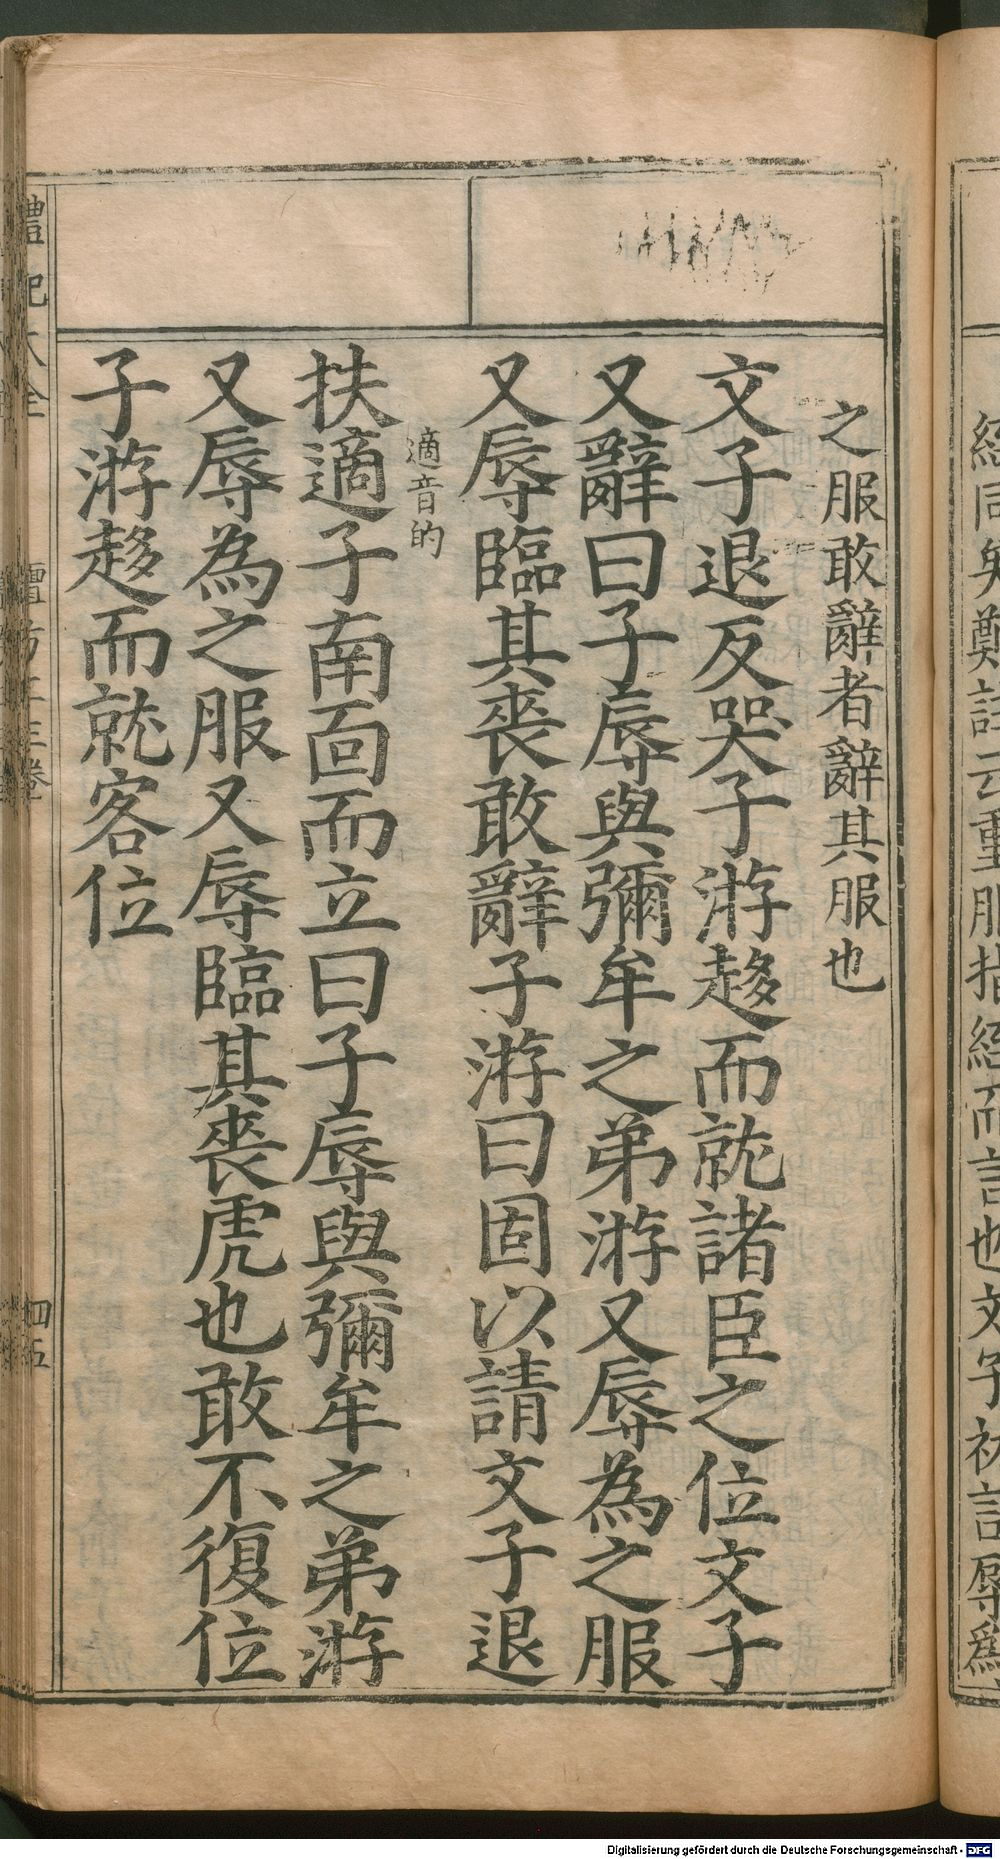 之服敢辭者辭其服也
文子退反哭子游趍而就諸臣之位文子
又辭曰子辱與彌牟之弟游又辱為之服
又辱臨其喪敢辭子游曰固以請文子退
適音的
扶適子南面而立曰子辱與彌牟之弟游
又辱為之服又辱臨其喪虎也敢不復位
子游趍而就客位
禮記大全
檀弓上三卷
四五
Digitalisierung gefördert durch die Deutsche Forschungsgemeinschaft - DFG